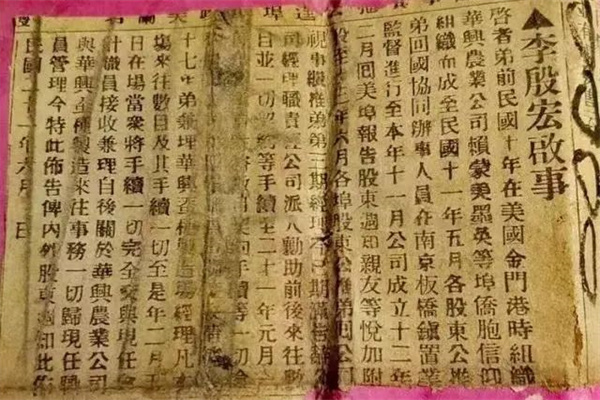 ▲李殷宏啟事
啓者弟前民國十年在美國金門港時組織
華興農業公司賴蒙美墨英等埠僑胞信仰
組織而成至民國十一年五月各股東公推
弟回國協同辦事人員在南京板橋鎮置業
監督進行至本年十一月公司成立十二年
二月囘美埠報告股東週知親友等悅加附
六月各埠股東公推弟回公
視事職
司經理職責經公司派人勷助前後來往數
目並一切
等手續至二十一年元月
手續等一切
十七年弟兼理華興蚕種
塲經理凡
塲來往數目及其手續一切至是年二月五
日在場當衆將手續一切完全交與現任
計職員接收兼理自後關於華興農業公司
與華興蚕種製造來往事務一切歸現任職
員管理今特此佈告俾內外股東週知此佈
民國二十一年六月 日